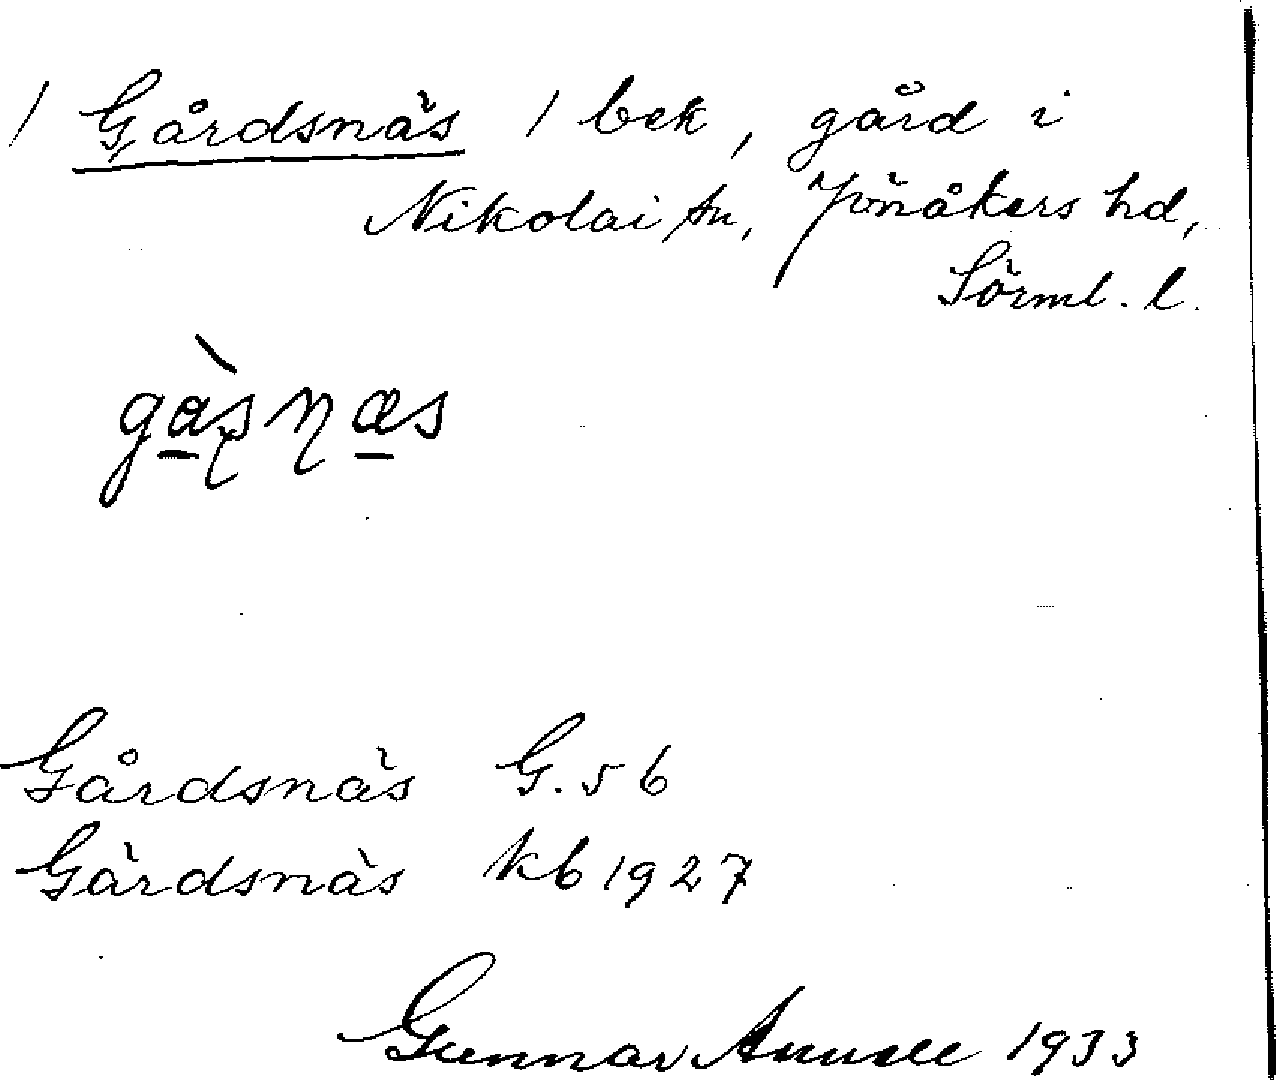 / Gårdsnäs / bek, gård i
Nikolai sn, Jönåkers hd,
Sörml. l.
gàṣɳæs
Gårdsnäs G. 56
Gärdsnäs kb 1927
Gunnar 1933